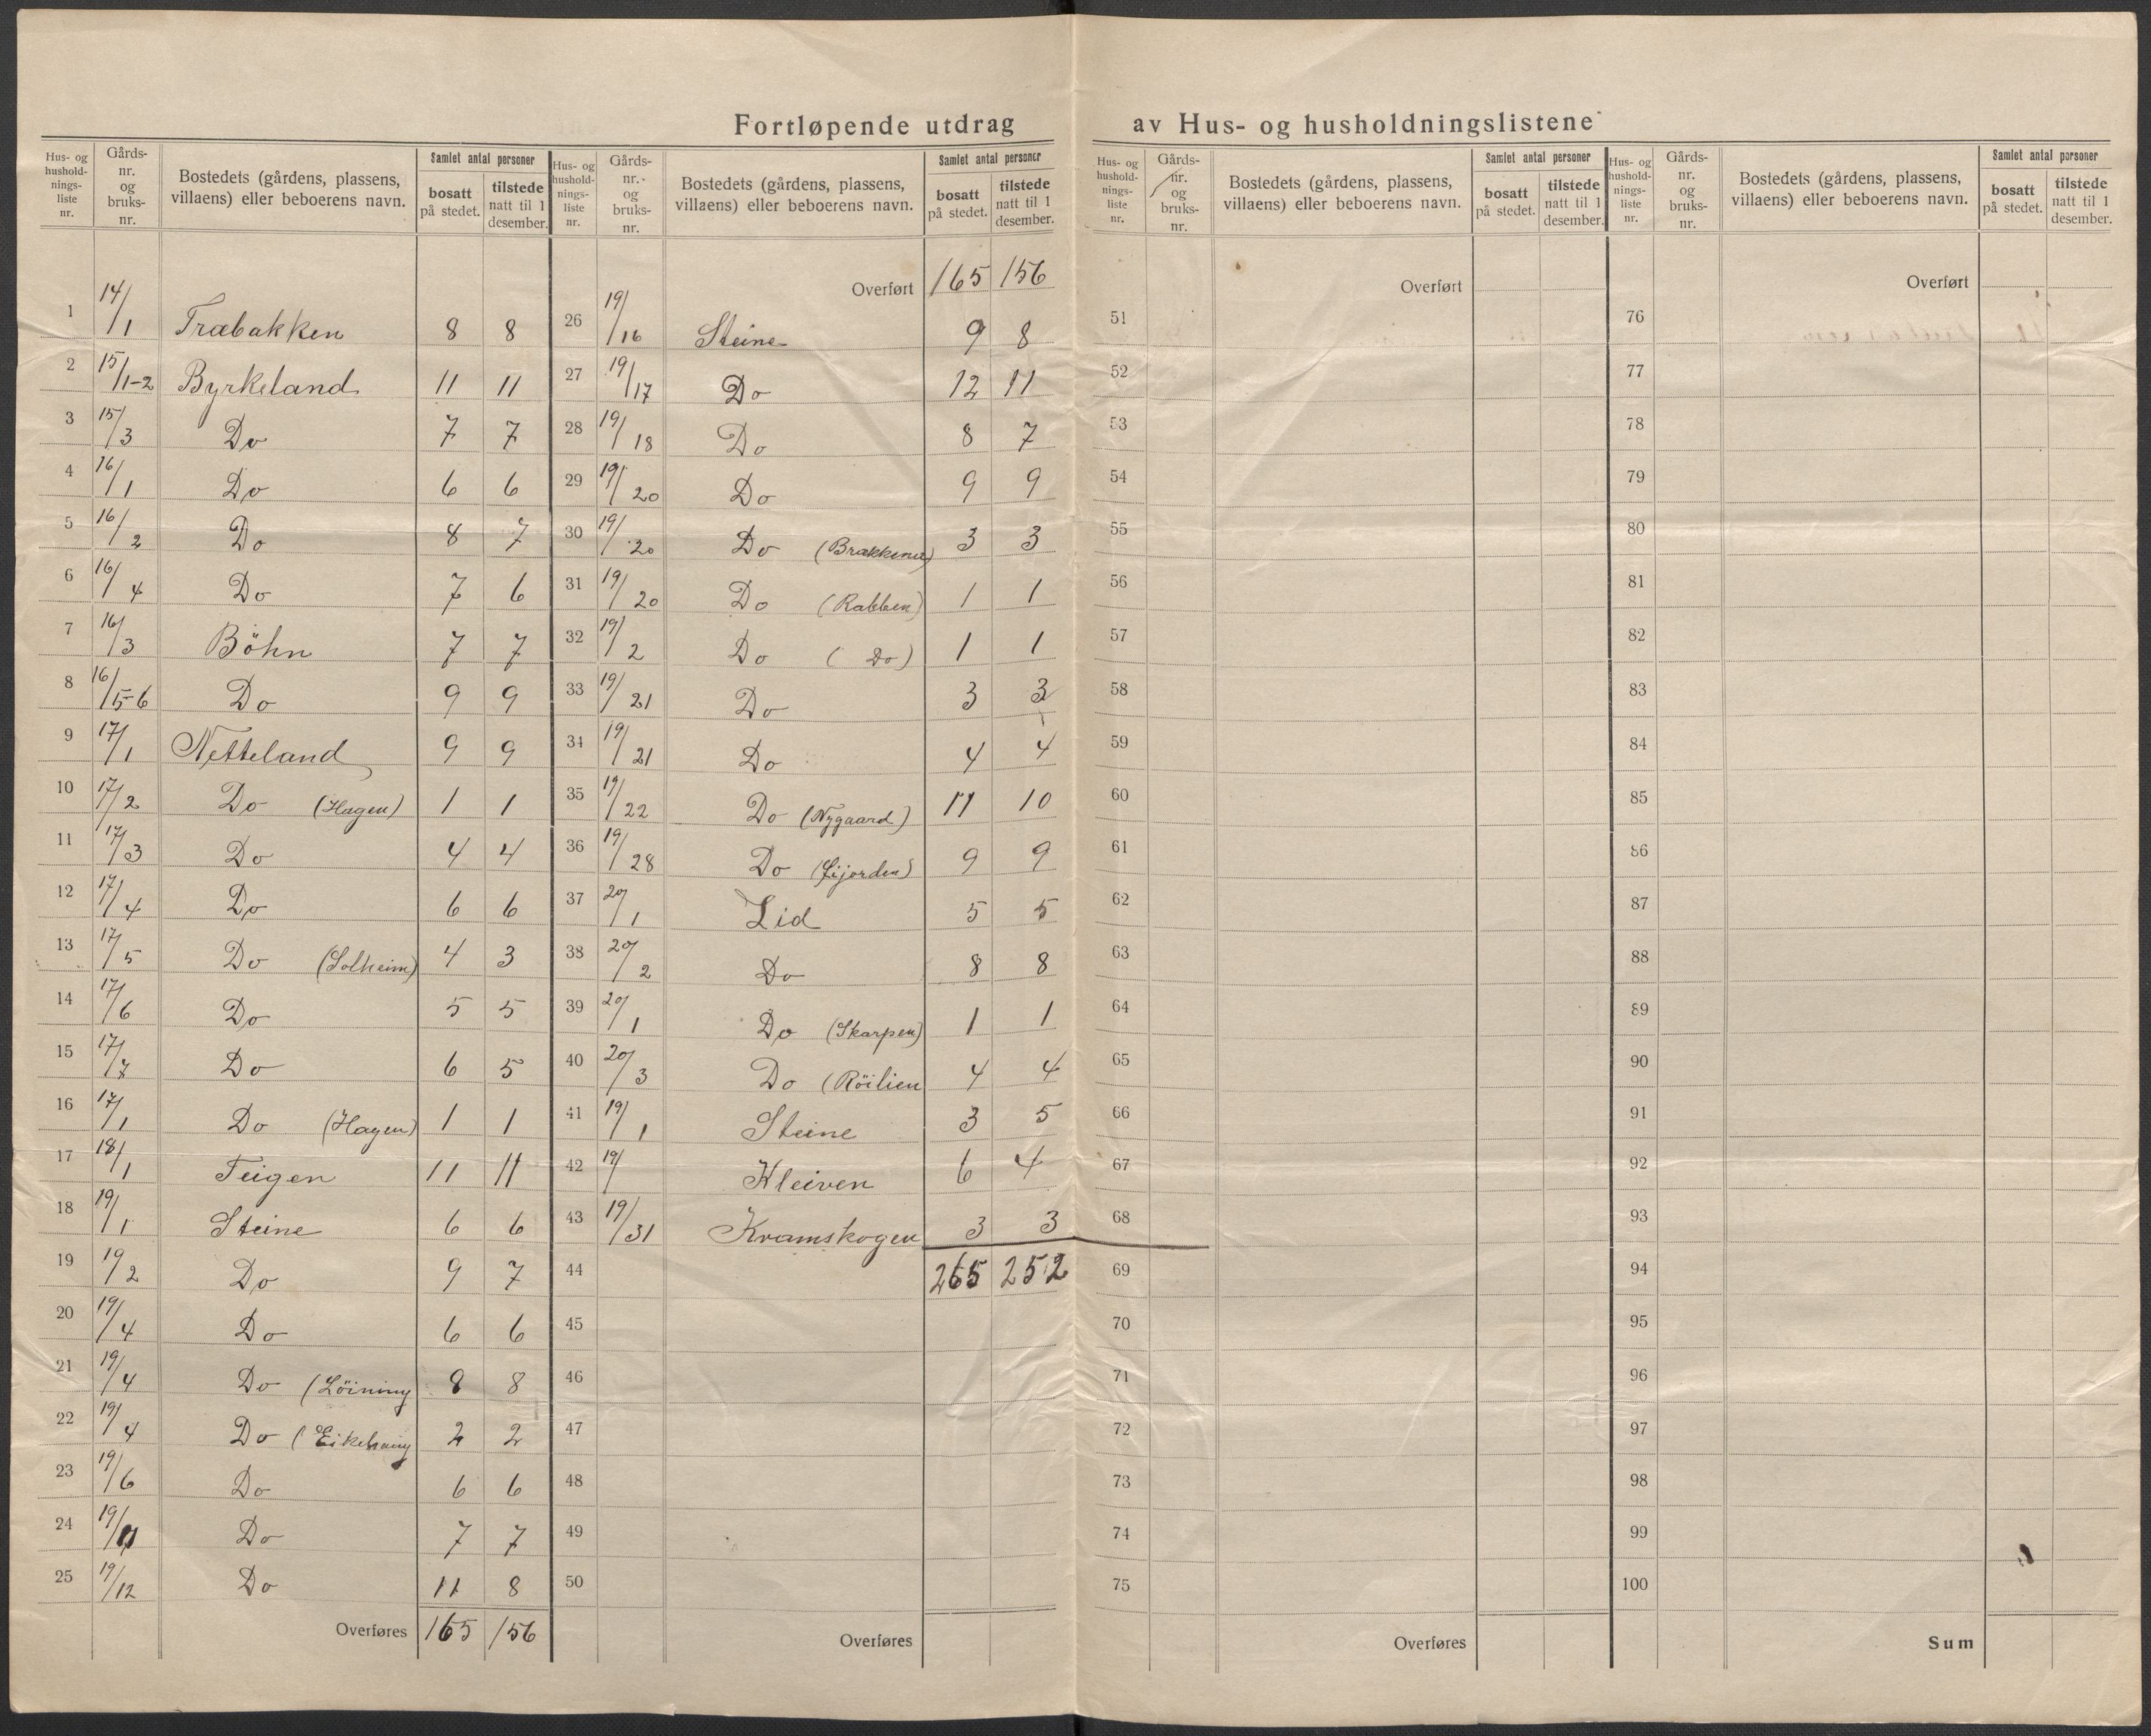 Fortløpende utdrag av Hus- og husholdningslistene
Hus- og husholdnings-liste nr. | Gårds-nr. og bruks-nr. | Bostedets (gårdens, plassens, villaens) eller beboerens navn. | Samlet antal personer | bosatt på stedet. | tilstede natt til 1 desember.
1 14/1 Træbakken 8 8
2 15/1-2 Byrkeland 11 11
3 15/3 Do 7 7
4 16/1 Do 6 6
5 16/2 Do 8 7
6 16/4 Do 7 6
7 16/3 Böhn 7 7
8 16/5-6 Do 9 9
9 17/1 Netteland 9 9
10 17/2 Do (Hagen) 1 1
11 17/3 Do 4 4
12 17/4 Do 6 6
13 17/5 Do (Solheim) 4 3
14 17/6 Do 5 5
15 17/7 Do 6 5
16 17/1 Do (Hagen) 1 1
17 18/1 Teigen 11 11
18 19/1 Steine 6 6
19 19/2 Do 9 7
20 19/4 Do 6 6
21 19/4 Do (Löining 8 8
22 19/4 Do (Eikehaug 2 2
23 19/6 Do 6 6
24 19/ Do 7 7
25 19/12 Do 11 8
Overføres 165 156
Hus- og husholdnings-liste nr. | Gårds-nr. og bruks-nr. | Bostedets (gårdens, plassens, villaens) eller beboerens navn. | Samlet antal personer | bosatt på stedet. | tilstede natt til 1 desember.
Overført 165 156
26 19/16 Steine 9 8
27 19/17 Do 12 11
28 19/18 Do 8 7
29 19/20 Do 9 9
30 19/20 Do (Brakkene) 3 3
31 19/20 Do (Rabben) 1 1
32 19/2 Do (Do) 1 1
33 19/21 Do 3 3
34 19/21 Do 4 4
35 19/22 Do (Nygaard) 11 10
36 19/28 Do 9 9
37 20/1 Lid 5 5
38 20/2 Do 8 8
39 20/1 Do (Skarpen) 1 1
40 20/3 Do (Röilien 4 4
41 19/1 Steine 3 5
42 19/ Kleiven 6 4
43 19/31 Kvamskogen 3 3
44 265 252
45
46
47
48
49
50
Overføres
Hus- og husholdnings-liste nr. | Gårds-nr. og bruks-nr. | Bostedets (gårdens, plassens, villaens) eller beboerens navn. | Samlet antal personer | bosatt på stedet. | tilstede natt til 1 desember.
Overført
51
52
53
54
55
56
57
58
59
60
61
62
63
64
65
66
67
68
69
70
71
72
73
74
75
Overføres
Hus- og husholdnings-liste nr. | Gårds-nr. og bruks-nr. | Bostedets (gårdens, plassens, villaens) eller beboerens navn. | Samlet antal personer | bosatt på stedet. | tilstede natt til 1 desember.
Overført
76
77
78
79
80
81
82
83
84
85
86
87
88
89
90
91
92
93
94
95
96
97
98
99
100
Sum